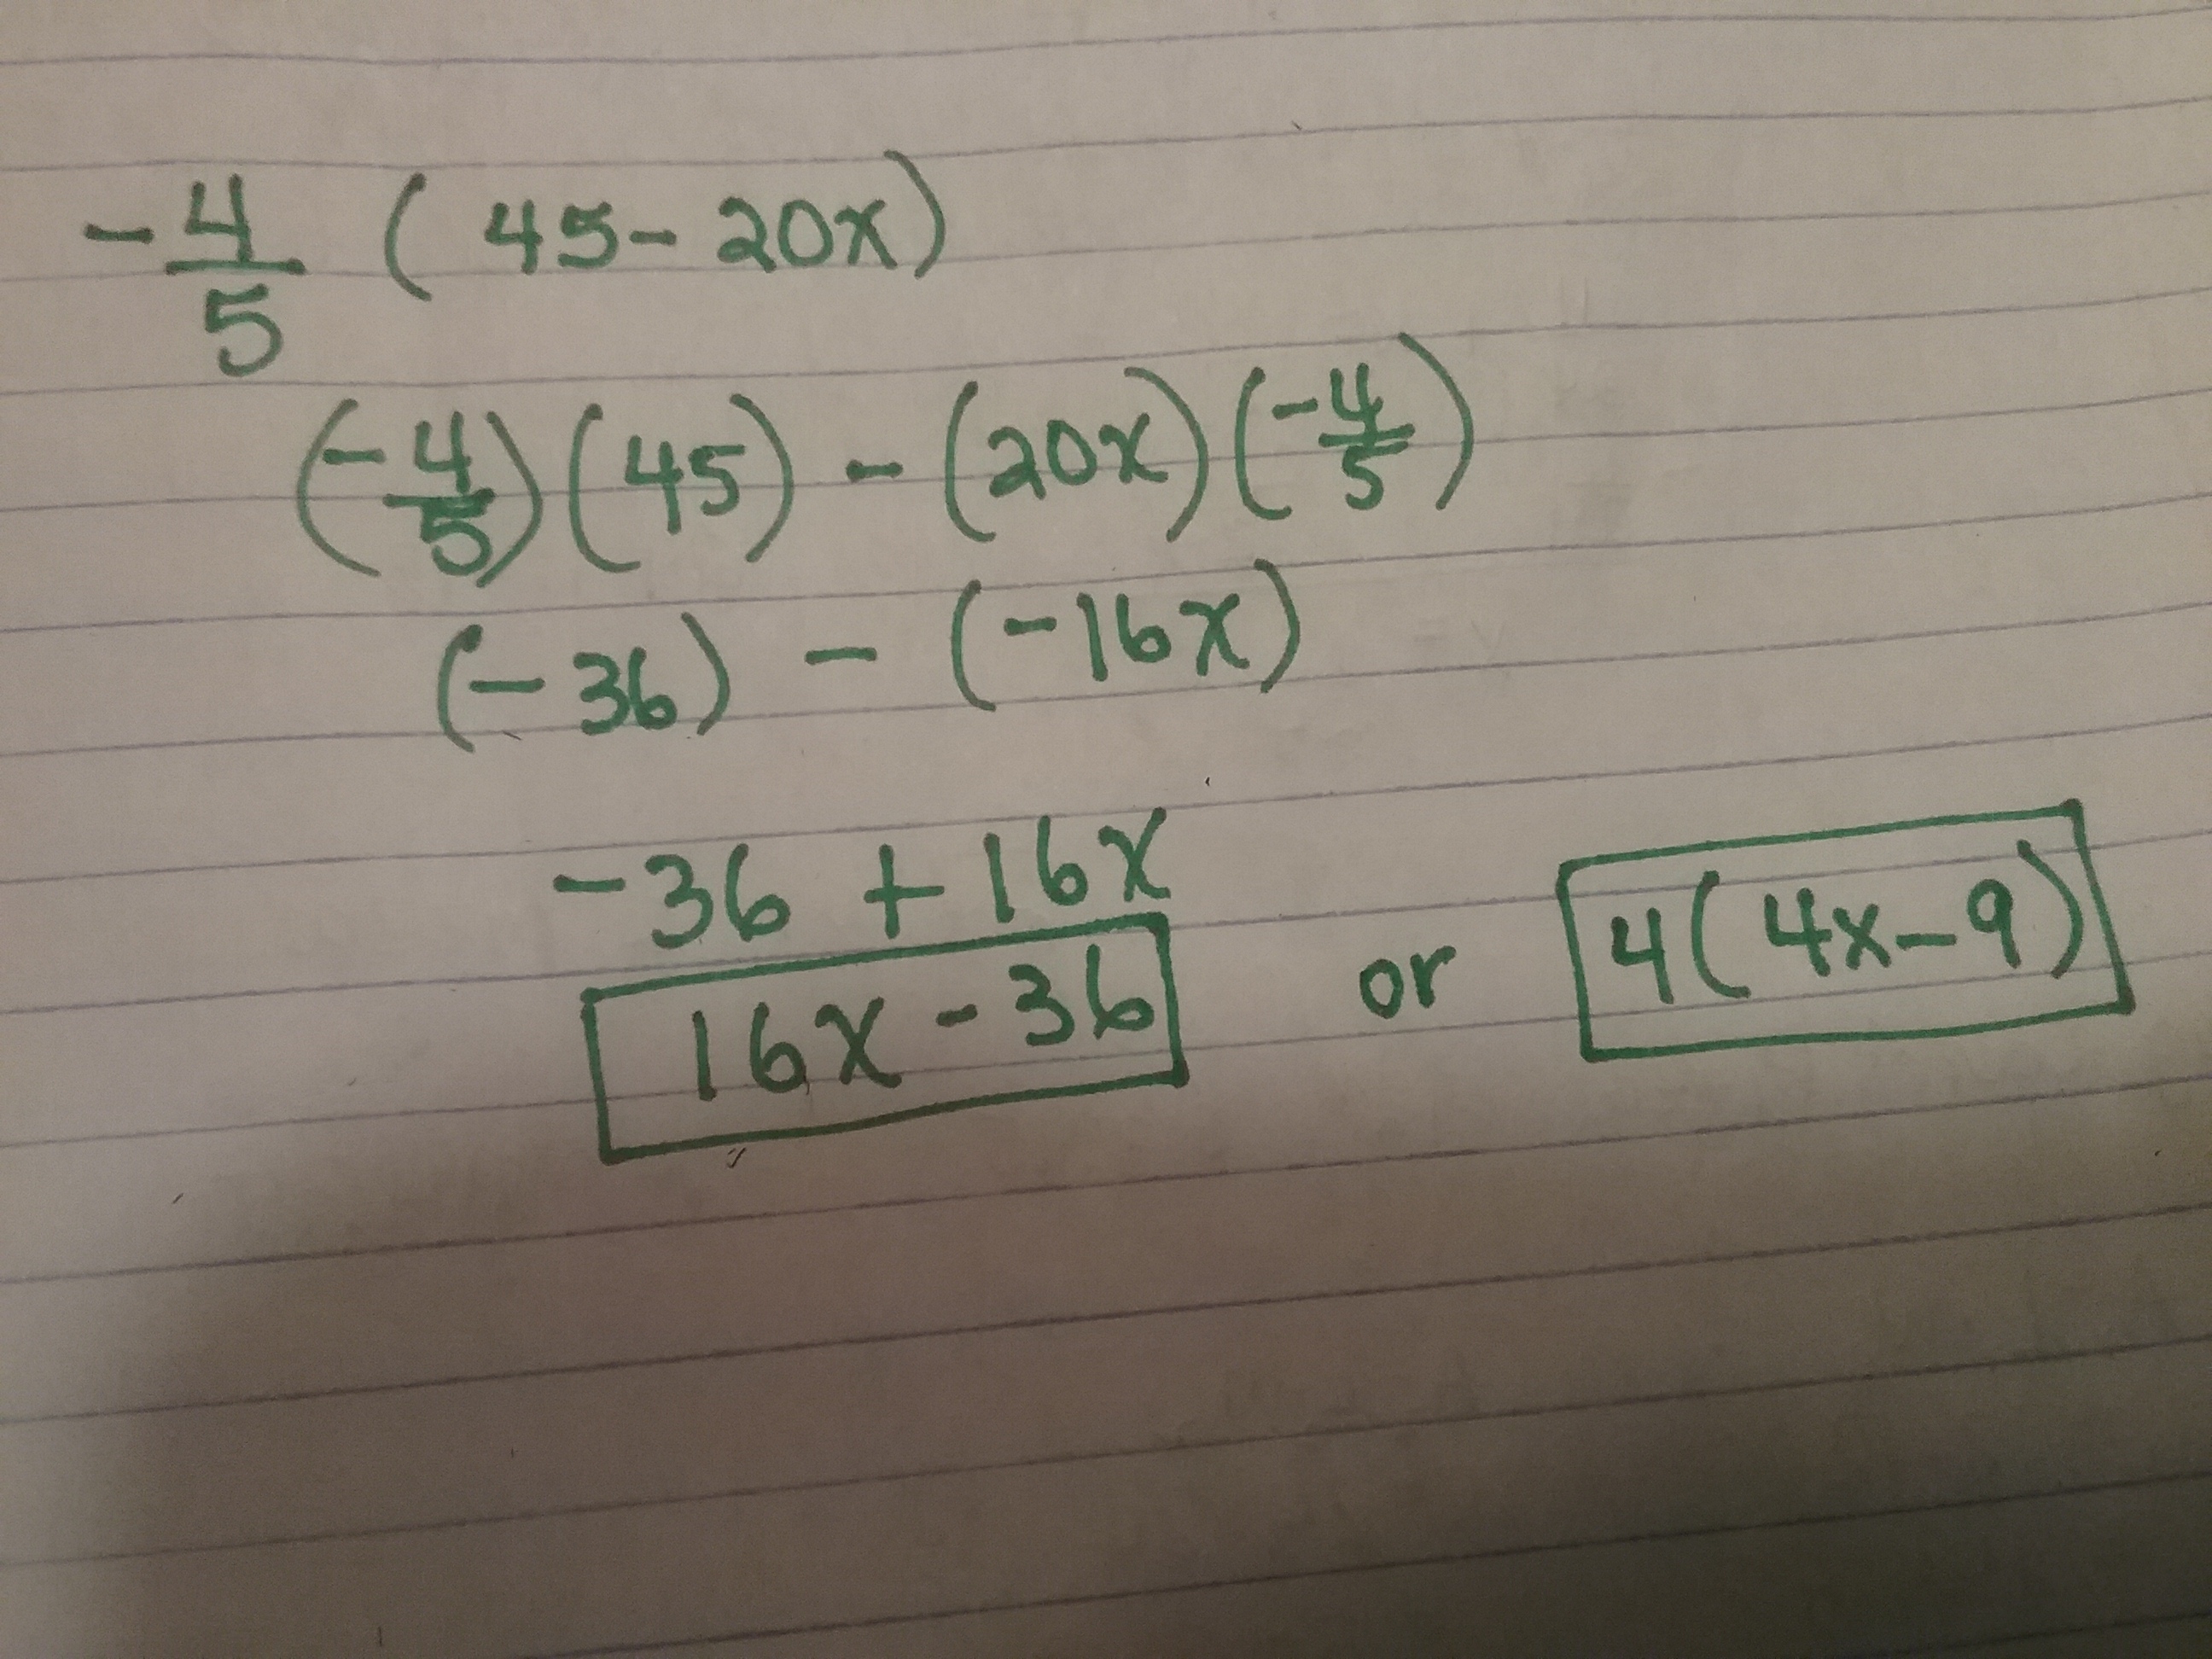 -4/5 (45-20x)
(-4/5)(45) - (20x)(-4/5)
(-36) - (-16x)
-36 + 16x
16x - 36 or 4(4x-9)